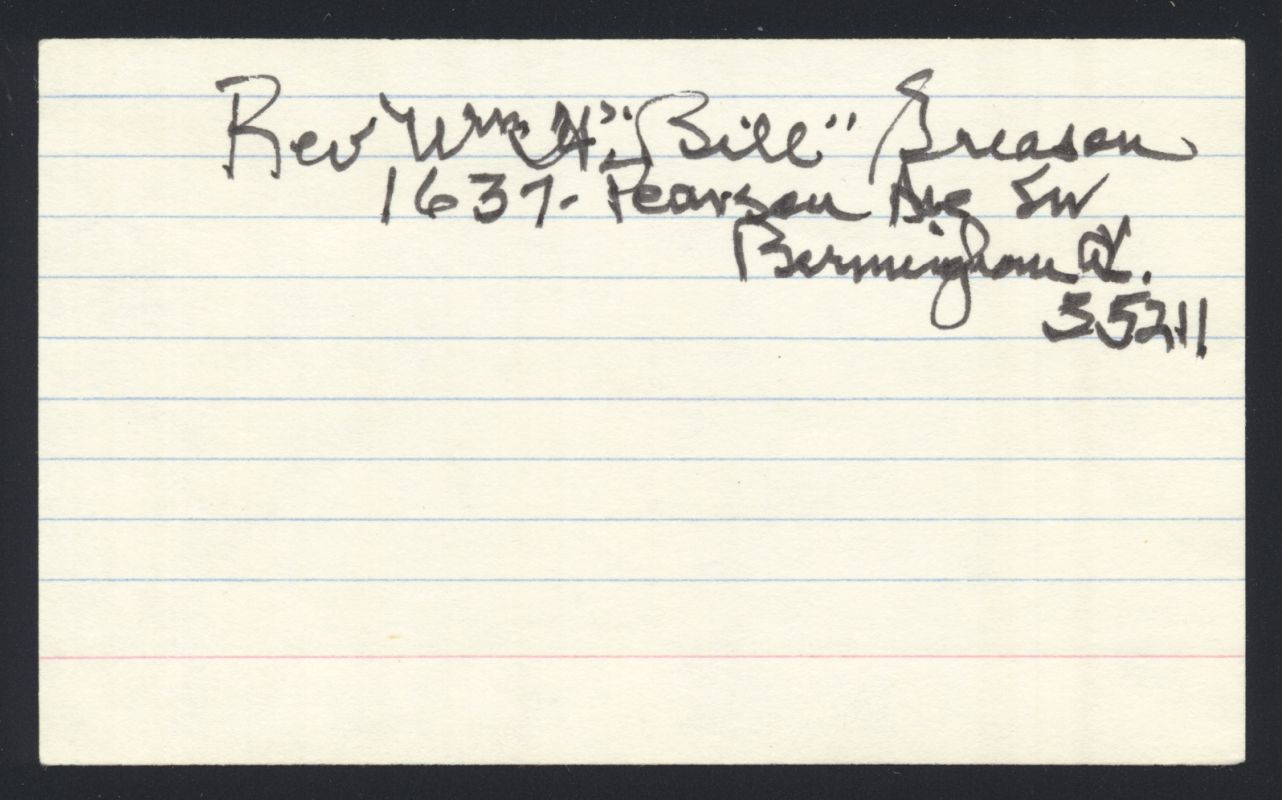 Rev Wm H. "Bill" Greason
1637- Pearson Ave SW
Birmingham Al.
35211